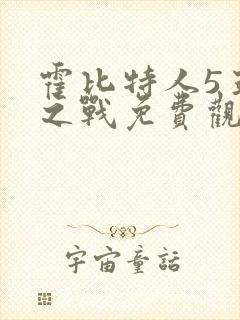 霍比特人5
之戰免費觀
宇宙童話